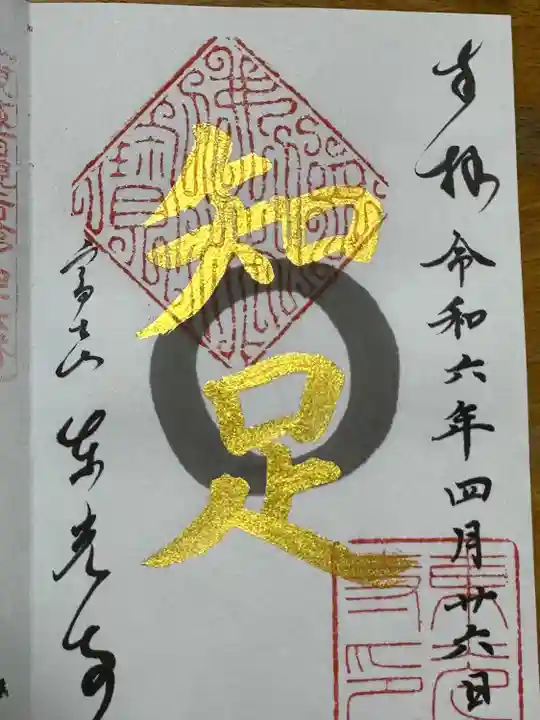 奉拝 令和六年四月廿六日
知足
富士山 東光寺